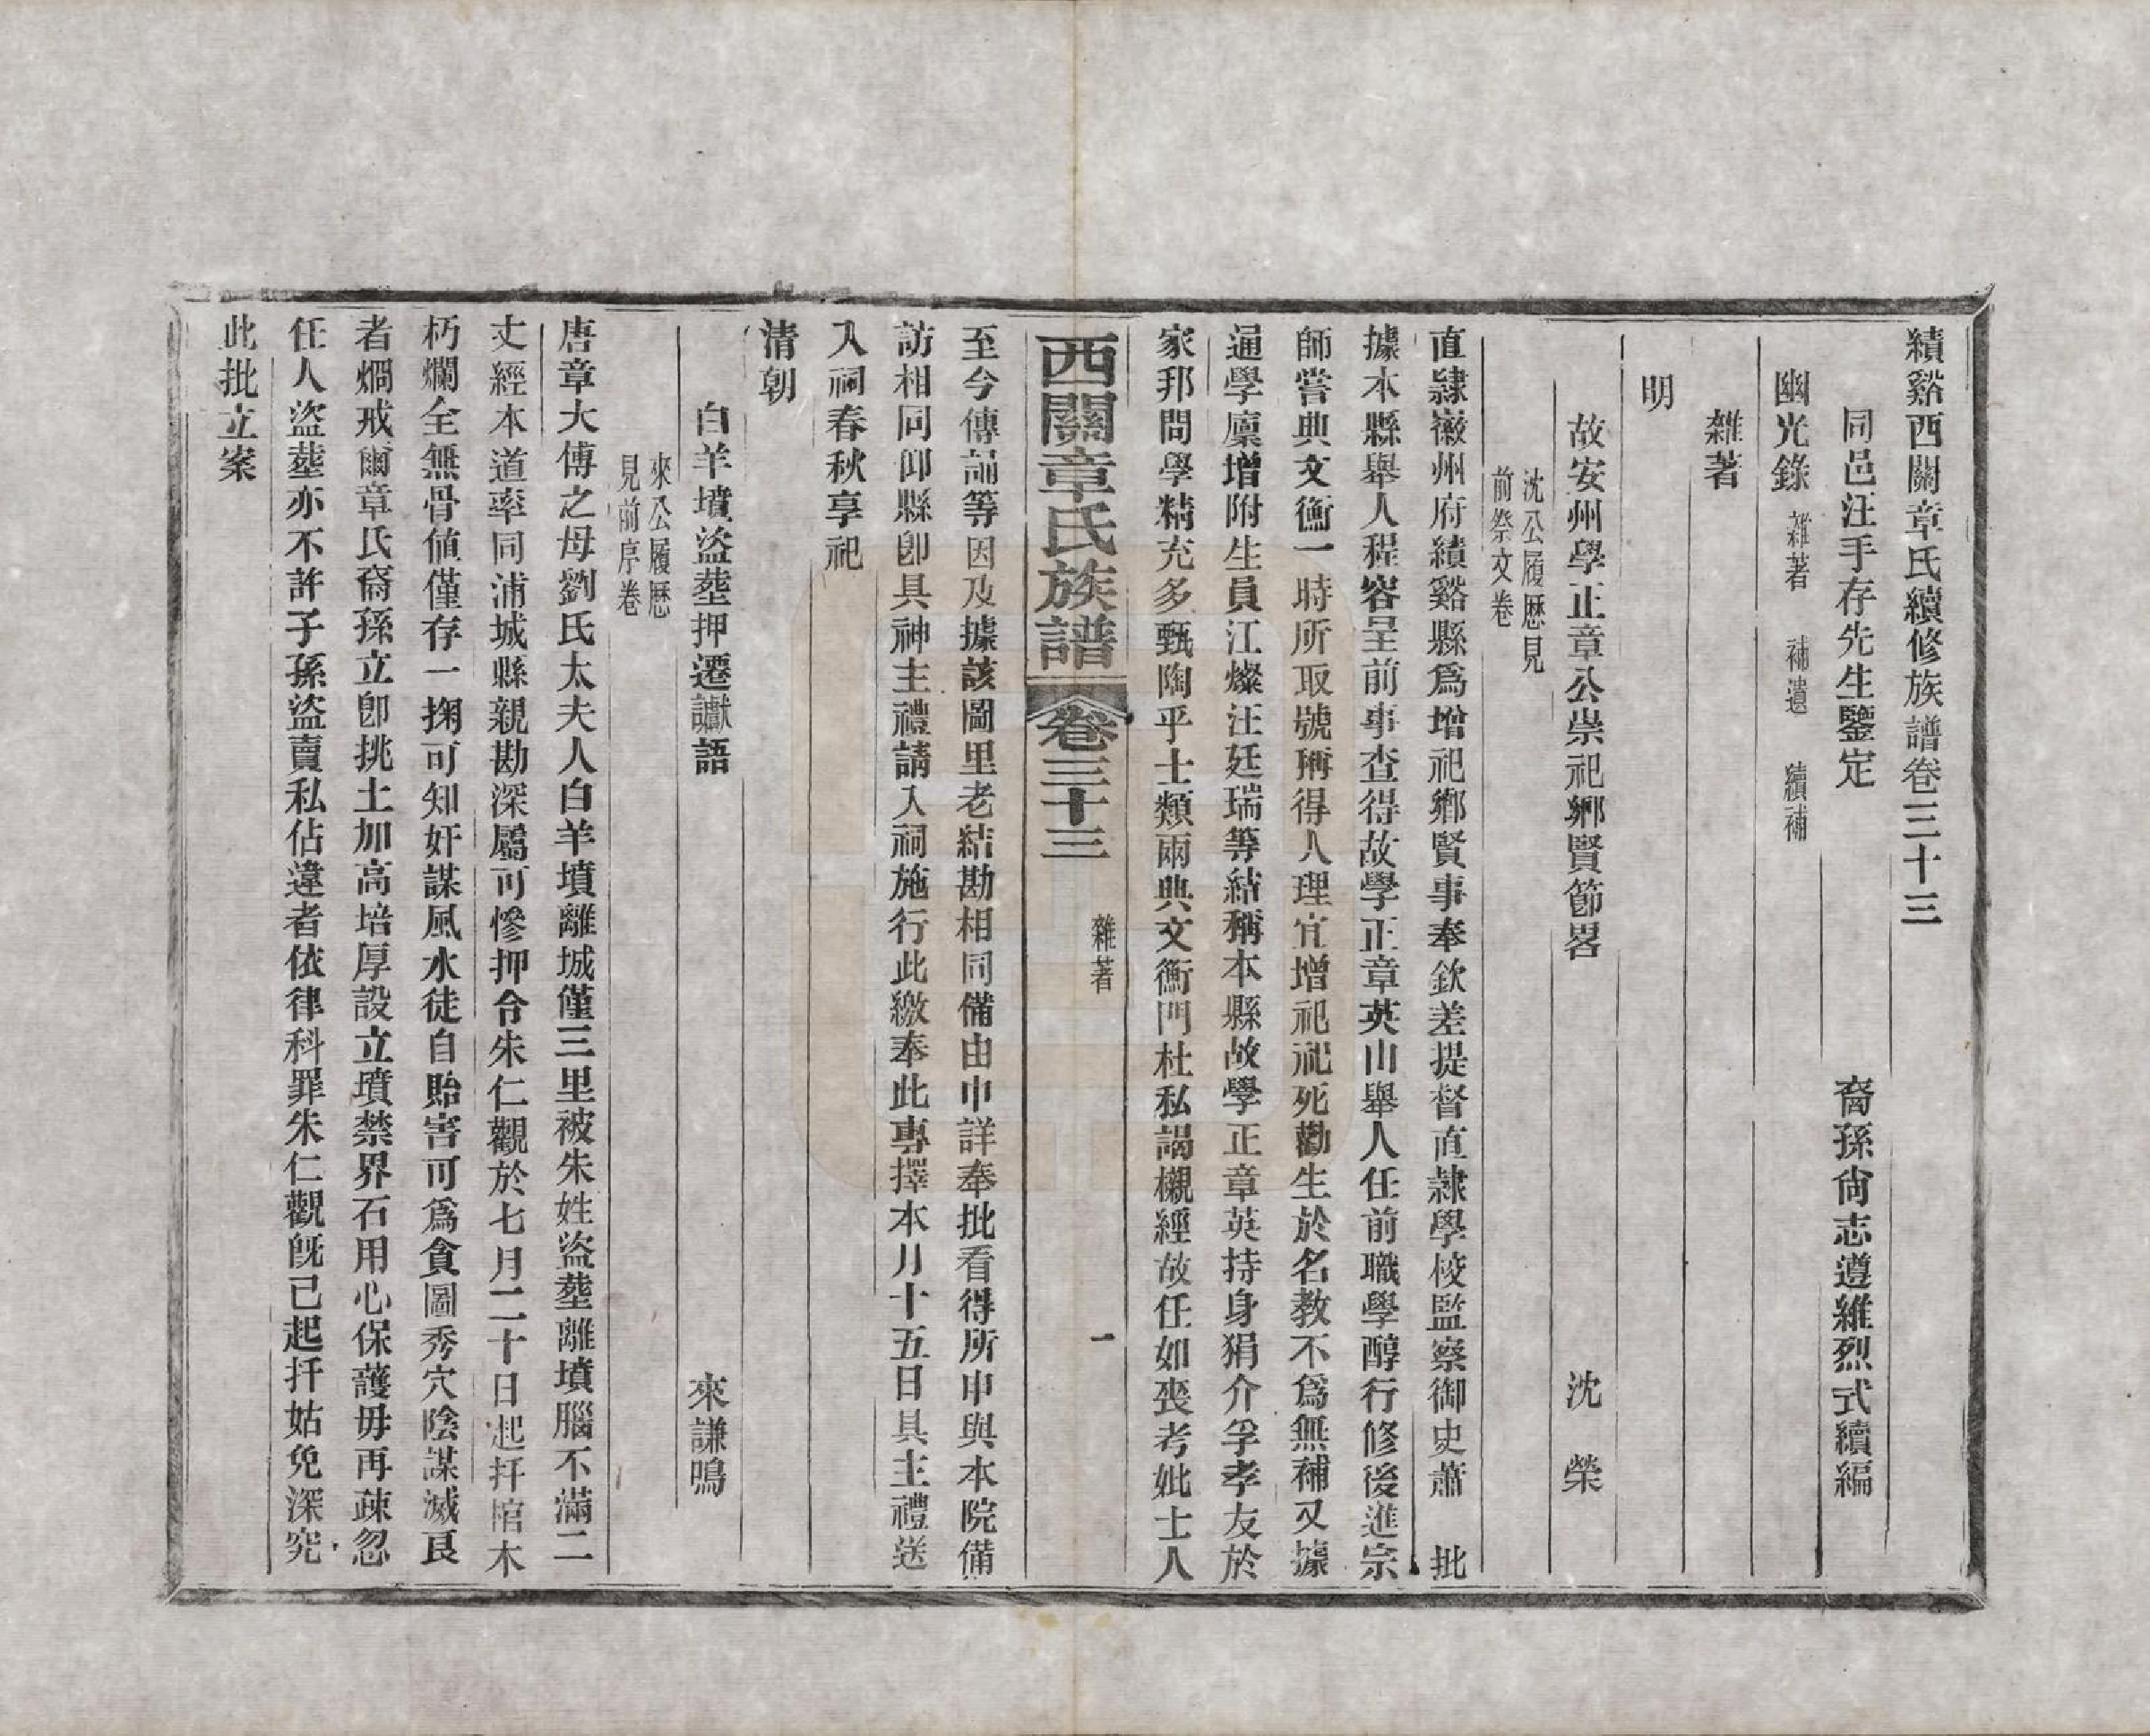 績谿西關章氏續修族譜卷三十三
同邑汪手存先生鑒定　裔孫尙志遵維烈式續編
幽光錄　雜著　補遺　續補
雜著
明
故安州學正章公崇祀鄕賢節畧　沈榮
沈公履歷見
前祭文卷
直隷徽州府績谿縣爲增祀鄕賢事奉欽差提督直隷學校監察御史蕭　批
據本縣舉人程容呈前事查得故學正章英山舉人任前職學醇行修後進宗
師嘗典文衡一時所取號稱得人理宜增祀祀死勸生於名教不爲無補又據
通學廩增附生員江燦汪廷瑞等結稱本縣故學正章英持身狷介孚孝友於
家邦問學精充多甄陶乎士類兩典文衡門杜私謁櫬經故任如喪考妣士人
西關章氏族譜　卷三十三　雜著　一
至今傳誦等因及據該圖里老結勘相同備由申詳奉批看得所申與本院備
訪相同仰縣卽具神主禮請入祠施行此繳奉此專擇本月十五日具主禮送
入祠春秋享祀
清朝
白羊墳盜塟押遷讞語　來謙鳴
來公履歷
見前序卷
唐章大傅之母劉氏太夫人白羊墳離城僅三里被朱姓盜塟離墳腦不滿二
丈經本道率同浦城縣親勘深屬可慘押令朱仁觀於七月二十日起扦棺木
朽爛全無骨値僅存一掬可知奸謀風水徒自貽害可爲貪圖秀穴陰謀滅良
者烱戒爾章氏裔孫立卽挑土加高培厚設立墳禁界石用心保護毋再疎忽
任人盜塟亦不許子孫盜賣私佔違者依律科罪朱仁觀旣已起扦姑免深究
此批立案